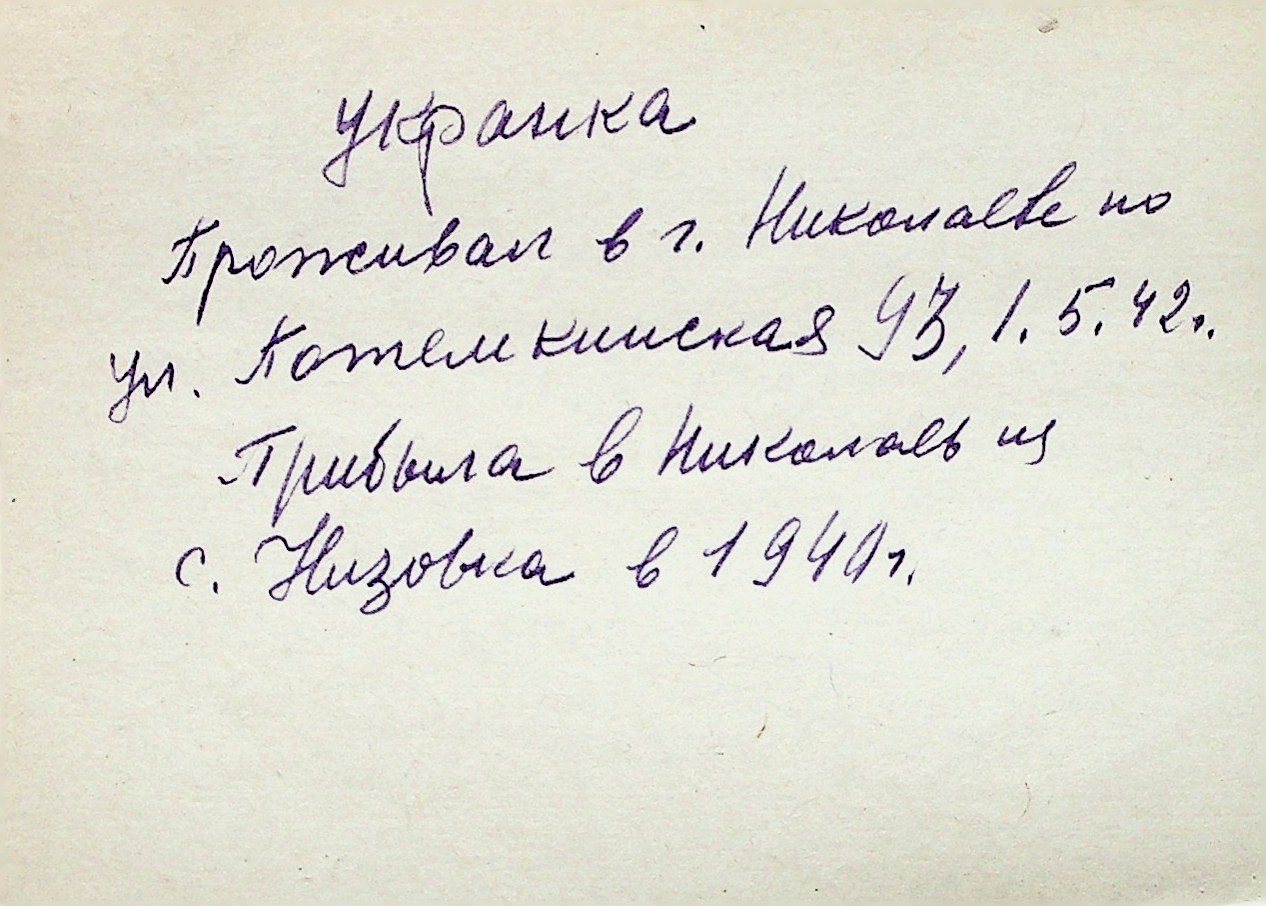 Укранка
Проживал в г. Николаеве по
ул. Потемкинская 93, 1.5.42г.
Прибыла в Николаев из
с. Низовка в 1940г.